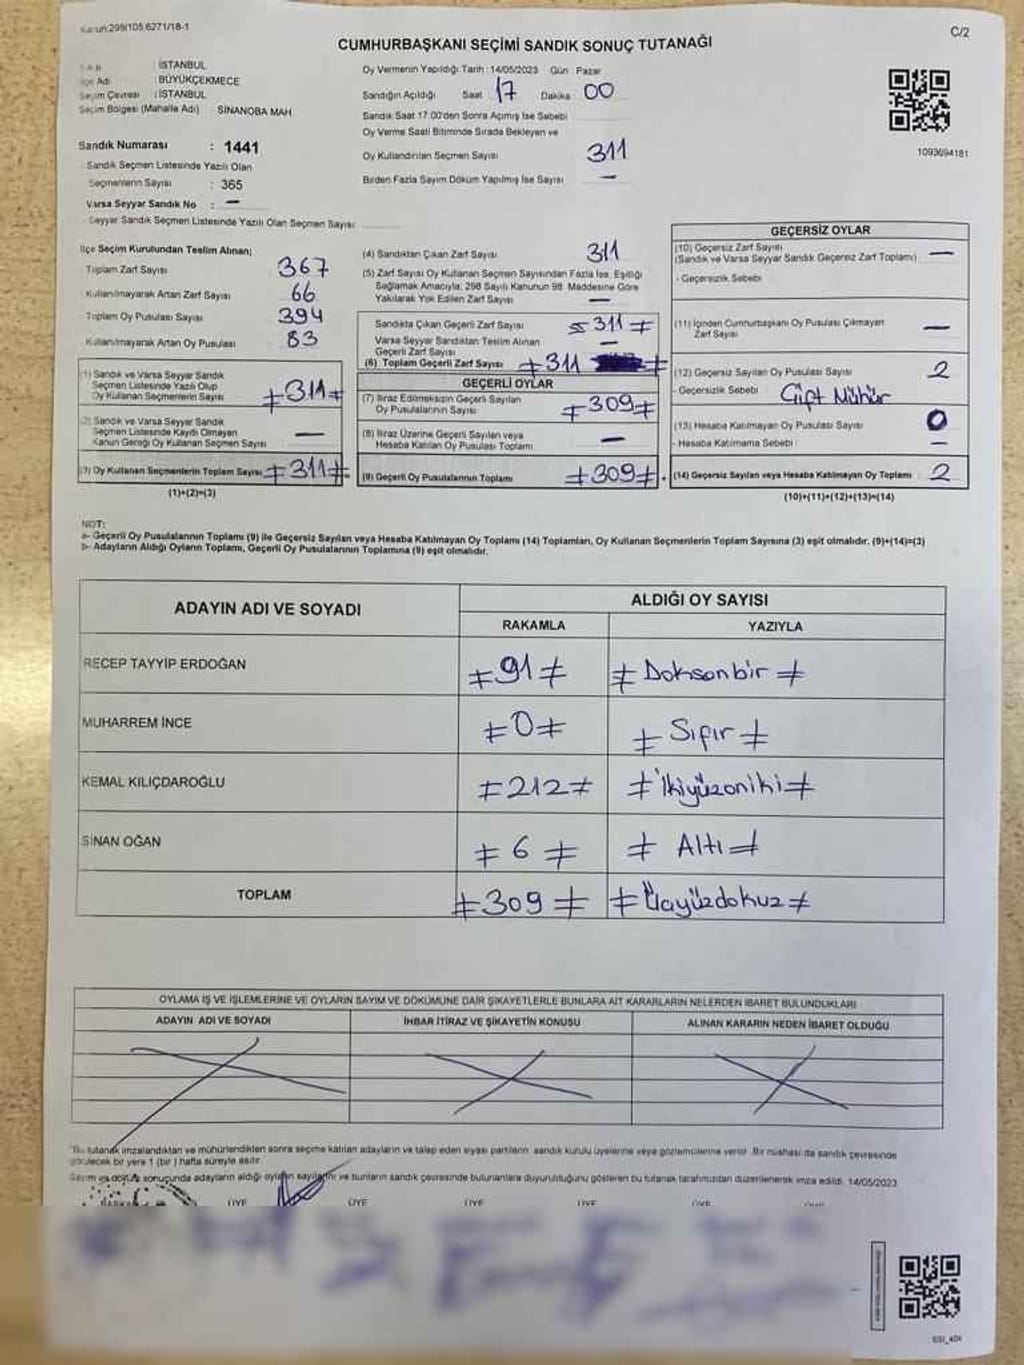 Kanun:298/105,6271/18-1
C/2
CUMHURBAŞKANI SEÇİMİ SANDIK SONUÇ TUTANAĞI
: İSTANBUL
İlçe Adı : BÜYÜKÇEKMECE
Seçim Çevresi : İSTANBUL
Seçim Bölgesi (Mahalle Adı) : SİNANOBA MAH
Sandık Numarası : 1441
Sandık Seçmen Listesinde Yazılı Olan
Seçmenlerin Sayısı : 365
Varsa Seyyar Sandık No : –
Seyyar Sandık Seçmen Listesinde Yazılı Olan Seçmen Sayısı
Oy Vermenin Yapıldığı Tarih : 14/05/2023 Gün : Pazar
Sandığın Açıldığı Saat : 17 Dakika : 00
Sandık Saat 17.00'den Sonra Açılmış İse Sebebi
Oy Verme Saati Bitiminde Sırada Bekleyen ve
Oy Kullandırılan Seçmen Sayısı 311
Birden Fazla Sayım Döküm Yapılmış İse Sayısı –
1093694181
İlçe Seçim Kurulundan Teslim Alınan;
Toplam Zarf Sayısı 367
Kullanılmayarak Artan Zarf Sayısı 66
Toplam Oy Pusulası Sayısı 394
Kullanılmayarak Artan Oy Pusulası 83
(1) Sandık ve Varsa Seyyar Sandık
Seçmen Listesinde Yazılı Olup
Oy Kullanan Seçmenlerin Sayısı ≠311≠
(2) Sandık ve Varsa Seyyar Sandık
Seçmen Listesinde Kaydı Olmayan
Kanun Gereği Oy Kullanan Seçmen Sayısı –
(3) Oy Kullanan Seçmenlerin Toplam Sayısı ≠311≠
(1)+(2)=(3)
(4) Sandıktan Çıkan Zarf Sayısı 311
(5) Zarf Sayısı Oy Kullanan Seçmen Sayısından Fazla İse, Eşitliği
Sağlamak Amacıyla, 298 Sayılı Kanunun 98. Maddesine Göre
Yakılarak Yok Edilen Zarf Sayısı –
Sandıkta Çıkan Geçerli Zarf Sayısı 311≠
Varsa Seyyar Sandıktan Teslim Alınan
Geçerli Zarf Sayısı –
(6) Toplam Geçerli Zarf Sayısı ≠311 ≠
GEÇERLİ OYLAR
(7) İtiraz Edilmeksizin Geçerli Sayılan
Oy Pusulalarının Sayısı ≠309≠
(8) İtiraz Üzerine Geçerli Sayılan veya
Hesaba Katılan Oy Pusulası Toplamı –
(9) Geçerli Oy Pusulalarının Toplamı ≠309≠ +
GEÇERSİZ OYLAR
(10) Geçersiz Zarf Sayısı
(Sandık ve Varsa Seyyar Sandık Geçersiz Zarf Toplamı) –
- Geçersizlik Sebebi
(11) İçinden Cumhurbaşkanı Oy Pusulası Çıkmayan
Zarf Sayısı –
(12) Geçersiz Sayılan Oy Pusulası Sayısı 2
- Geçersizlik Sebebi Çift Mühür
(13) Hesaba Katılmayan Oy Pusulası Sayısı 0
- Hesaba Katılmama Sebebi : –
(14) Geçersiz Sayılan veya Hesaba Katılmayan Oy Toplamı 2
(10)+(11)+(12)+(13)=(14)
NOT:
a- Geçerli Oy Pusulalarının Toplamı (9) ile Geçersiz Sayılan veya Hesaba Katılmayan Oy Toplamı (14) Toplamları, Oy Kullanan Seçmenlerin Toplam Sayısına (3) eşit olmalıdır. (9)+(14)=(3)
b- Adayların Aldığı Oyların Toplamı, Geçerli Oy Pusulalarının Toplamına (9) eşit olmalıdır.
ADAYIN ADI VE SOYADI ALDIĞI OY SAYISI
RAKAMLA YAZIYLA
RECEP TAYYİP ERDOĞAN ≠91≠ ≠ Doksanbir ≠
MUHARREM İNCE ≠0≠ ≠ Sıfır ≠
KEMAL KILIÇDAROĞLU ≠212≠ ≠ İkiyüzoniki ≠
SİNAN OĞAN ≠ 6 ≠ ≠ Altı ≠
TOPLAM ≠309≠ ≠ Üçyüzdokuz ≠
OYLAMA İŞ VE İŞLEMLERİNE VE OYLARIN SAYIM VE DÖKÜMÜNE DAİR ŞİKAYETLERLE BUNLARA AİT KARARLARIN NELERDEN İBARET BULUNDUKLARI
ADAYIN ADI VE SOYADI İHBAR İTİRAZ VE ŞİKAYETİN KONUSU ALINAN KARARIN NEDEN İBARET OLDUĞU
*Bu tutanak imzalandıktan ve mühürlendikten sonra seçime katılan adayların ve talep eden siyasi partilerin sandık kurulu üyelerine veya gözlemcilerine verilir. Bir nüshası da sandık çevresinde
görülecek bir yere 1 (bir) hafta süreyle asılır.
Sayım ve döküm sonucunda adayların aldığı oyların sayılarını ve bunların sandık çevresinde bulunanlara duyurulduğunu gösteren bu tutanak tarafımızdan düzenlenerek imza edildi. 14/05/2023
BAŞKAN ÜYE ÜYE ÜYE ÜYE